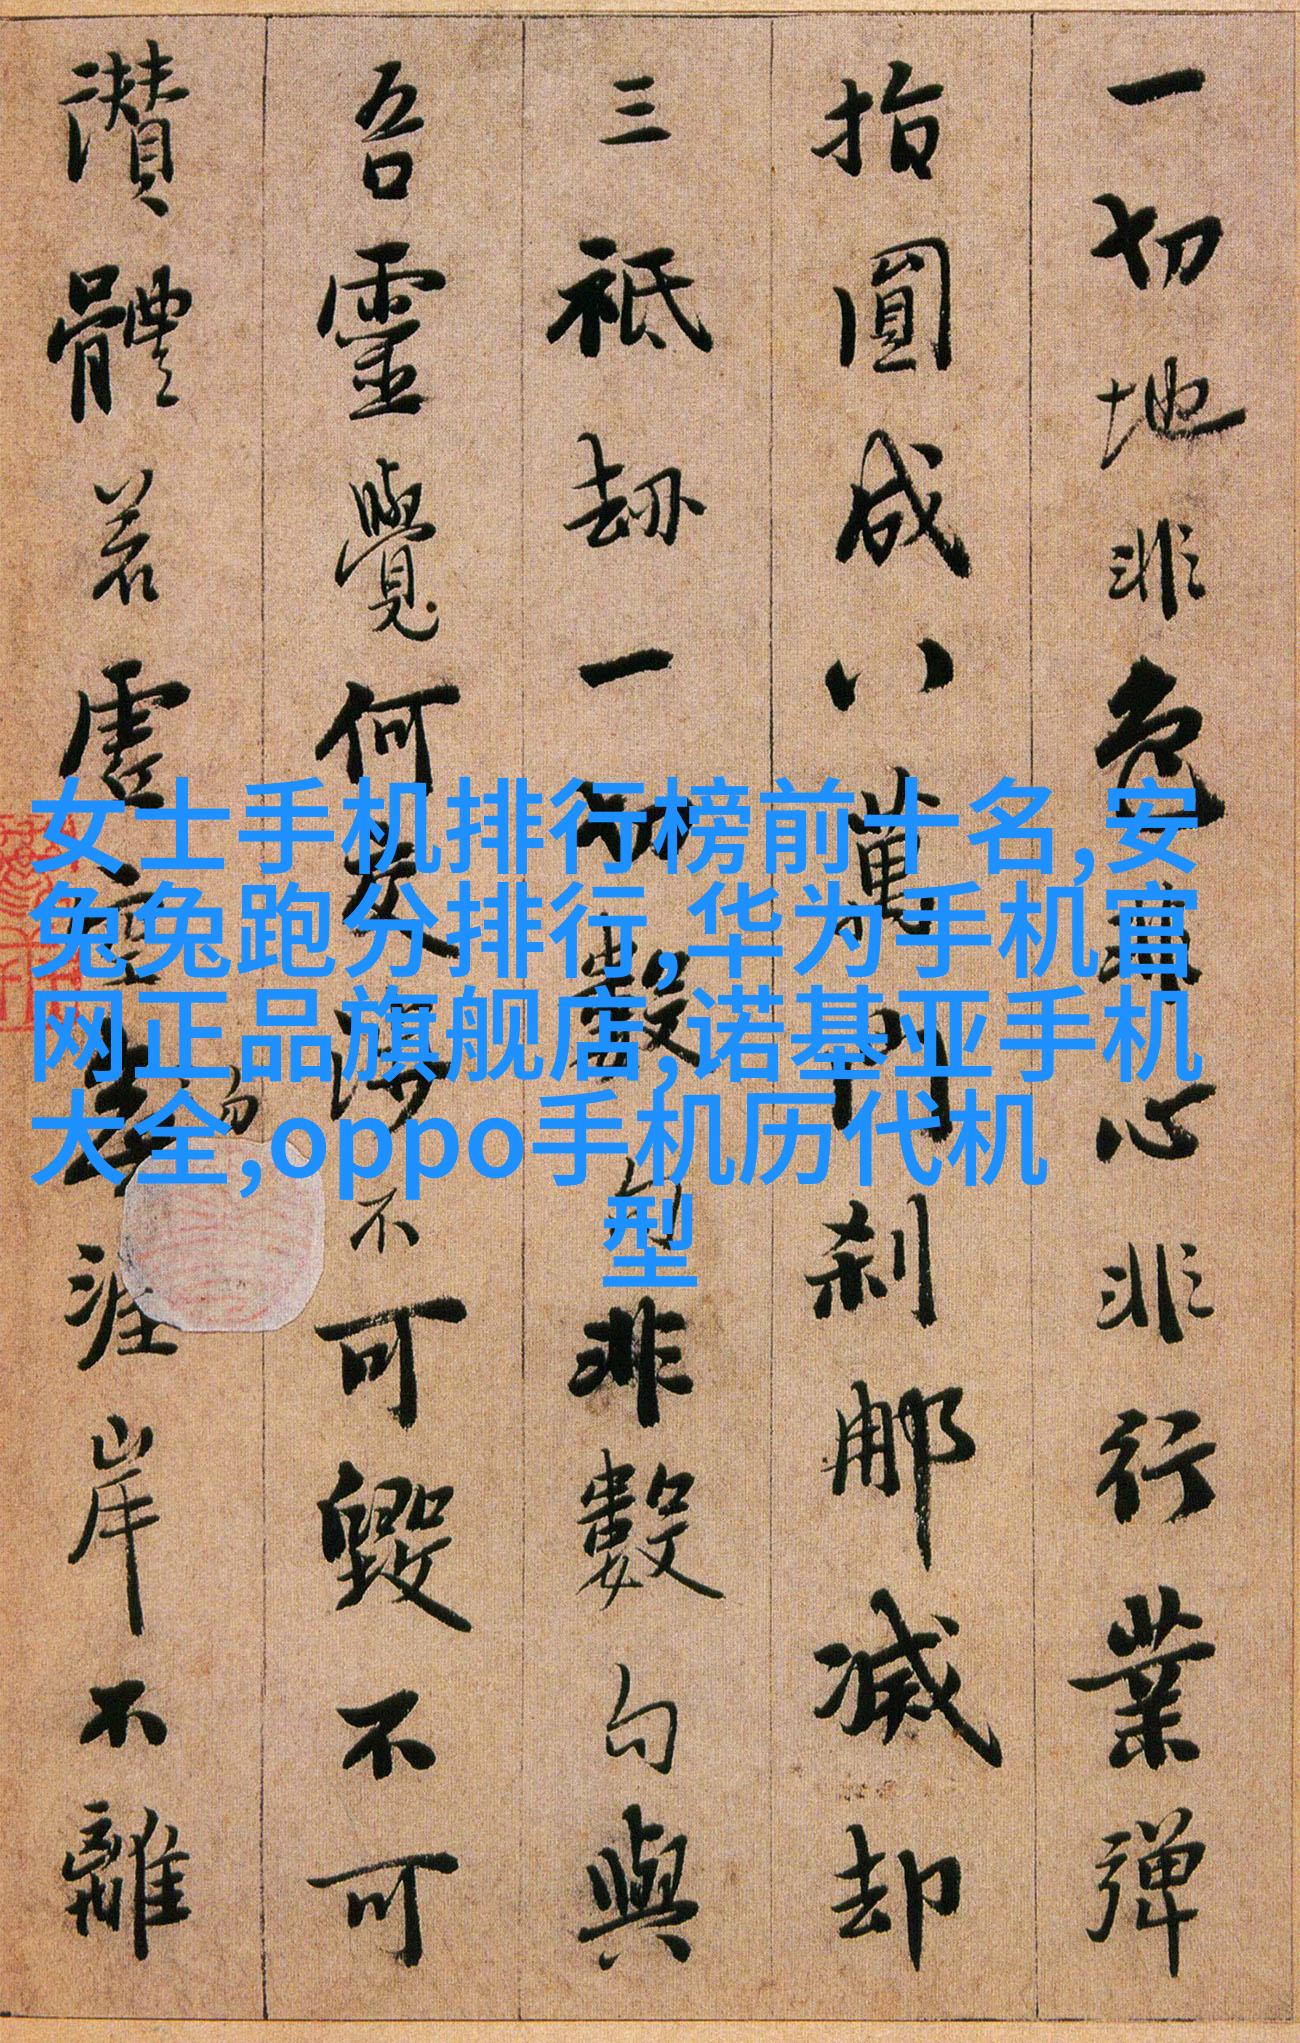 女士手机排行榜前十名,安
兔兔跑分排行,华为手机官
网正品旗舰店,诺基亚手机
大全,oppo手机历代机
型
一切地非色非心非行業彈
指圓成八萬門刹那滅却
三祇劫一切數句非數句與
吾靈覺何交涉不可毀不可
讃體若虛空勿涯岸不離